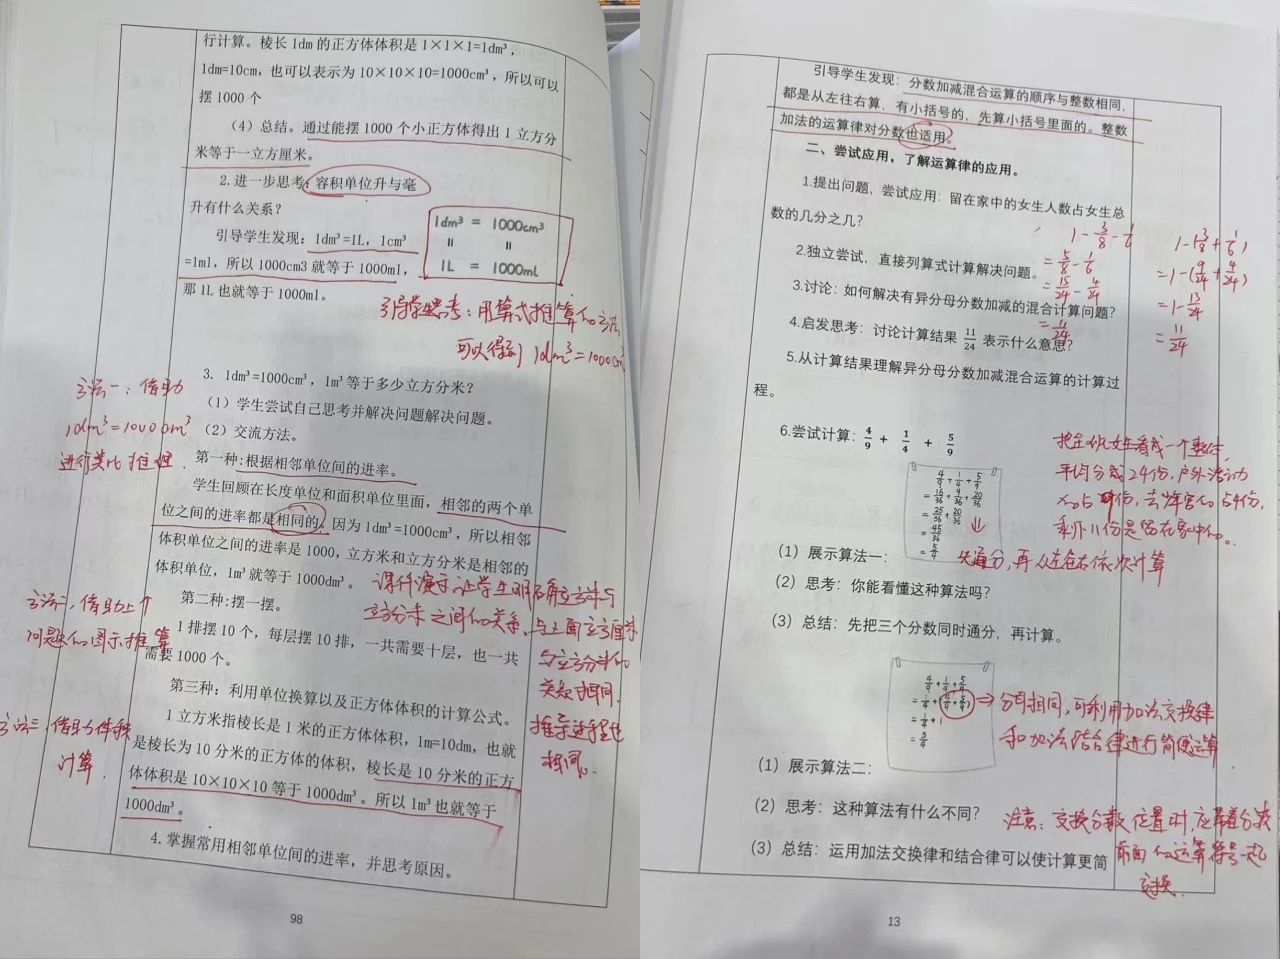 行计算。棱长 1dm 的正方体体积是 1×1×1=1dm³，
1dm=10cm，也可以表示为 10×10×10=1000cm³，所以可以
摆 1000 个
（4）总结。通过能摆 1000 个小正方体得出 1 立方分
米等于一立方厘米。
2.进一步思考：容积单位升与毫
升有什么关系？
引导学生发现：1dm³=1L，1cm³
=1ml，所以 1000cm3 就等于 1000ml，
那 1L 也就等于 1000ml。
1dm³ = 1000cm³
॥ ॥
1L = 1000ml
引导学生思考：用算式推算的方法
可以得到 1dm³=1000cm³
3. 1dm³=1000cm³，1m³等于多少立方分米？
（1）学生尝试自己思考并解决问题解决问题。
（2）交流方法。
方法一：借助
1dm³=1000cm³
进行类比推理.
第一种:根据相邻单位间的进率。
学生回顾在长度单位和面积单位里面，相邻的两个单
位之间的进率都是相同的。因为 1dm³=1000cm³，所以相邻
体积单位之间的进率是 1000，立方米和立方分米是相邻的
体积单位，1m³就等于 1000dm³。
课件演示让学生明确立方米与
立方分米之间的关系，与上面立方厘米
与立方分米的
关系相同.
推导过程也
相同。
第二种:摆一摆。
1 排摆 10 个，每层摆 10 排，一共需要十层，也一共
需要 1000 个。
方法二，借助上个
问题的图示推算
第三种：利用单位换算以及正方体体积的计算公式。
1 立方米指棱长是 1 米的正方体体积，1m=10dm，也就
是棱长为 10 分米的正方体的体积，棱长是 10 分米的正方
体体积是 10×10×10 等于 1000dm³。所以 1m³也就等于
1000dm³。
方法三，借助体积
计算.
4.掌握常用相邻单位间的进率，并思考原因。
98
引导学生发现：分数加减混合运算的顺序与整数相同，
都是从左往右算，有小括号的，先算小括号里面的。整数
加法的运算律对分数也适用。
二、尝试应用，了解运算律的应用。
1.提出问题，尝试应用：留在家中的女生人数占女生总
数的几分之几？
2.独立尝试，直接列算式计算解决问题。
3.讨论：如何解决有异分母分数加减的混合计算问题？
4.启发思考：讨论计算结果 11/24 表示什么意思？
5.从计算结果理解异分母分数加减混合运算的计算过
程。
1-3/8-1/6
=5/8-1/6
=15/24-4/24
=11/24
1-(3/8+1/6)
=1-(9/24+4/24)
=1-13/24
=11/24
6.尝试计算：4/9 + 1/4 + 5/9
4/9+1/4+5/9
=16/36+9/36+20/36
=25/36+20/36
=45/36
=5/4
把全班女生看成一个整体，
平均分成24份，户外活动
剩下11份是留在家中的。
先通分，再从左至右依次计算
（1）展示算法一：
（2）思考：你能看懂这种算法吗？
（3）总结：先把三个分数同时通分，再计算。
4/9+1/4+5/9
=1/4+(4/9+5/9)
=1/4+1
=5/4
→分母相同，可利用加法交换律
和加法结合律进行简便运算
（1）展示算法二：
（2）思考：这种算法有什么不同？
（3）总结：运用加法交换律和结合律可以使计算更简
注意：交换分数位置时，应带着分数
前面的运算符号一起
交换.
13